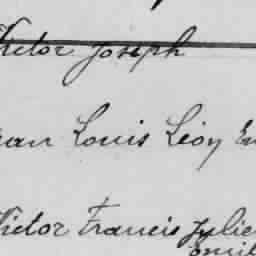 Victor Joseph
ean Louis Léon Em
Victor Francis Julie
Emil